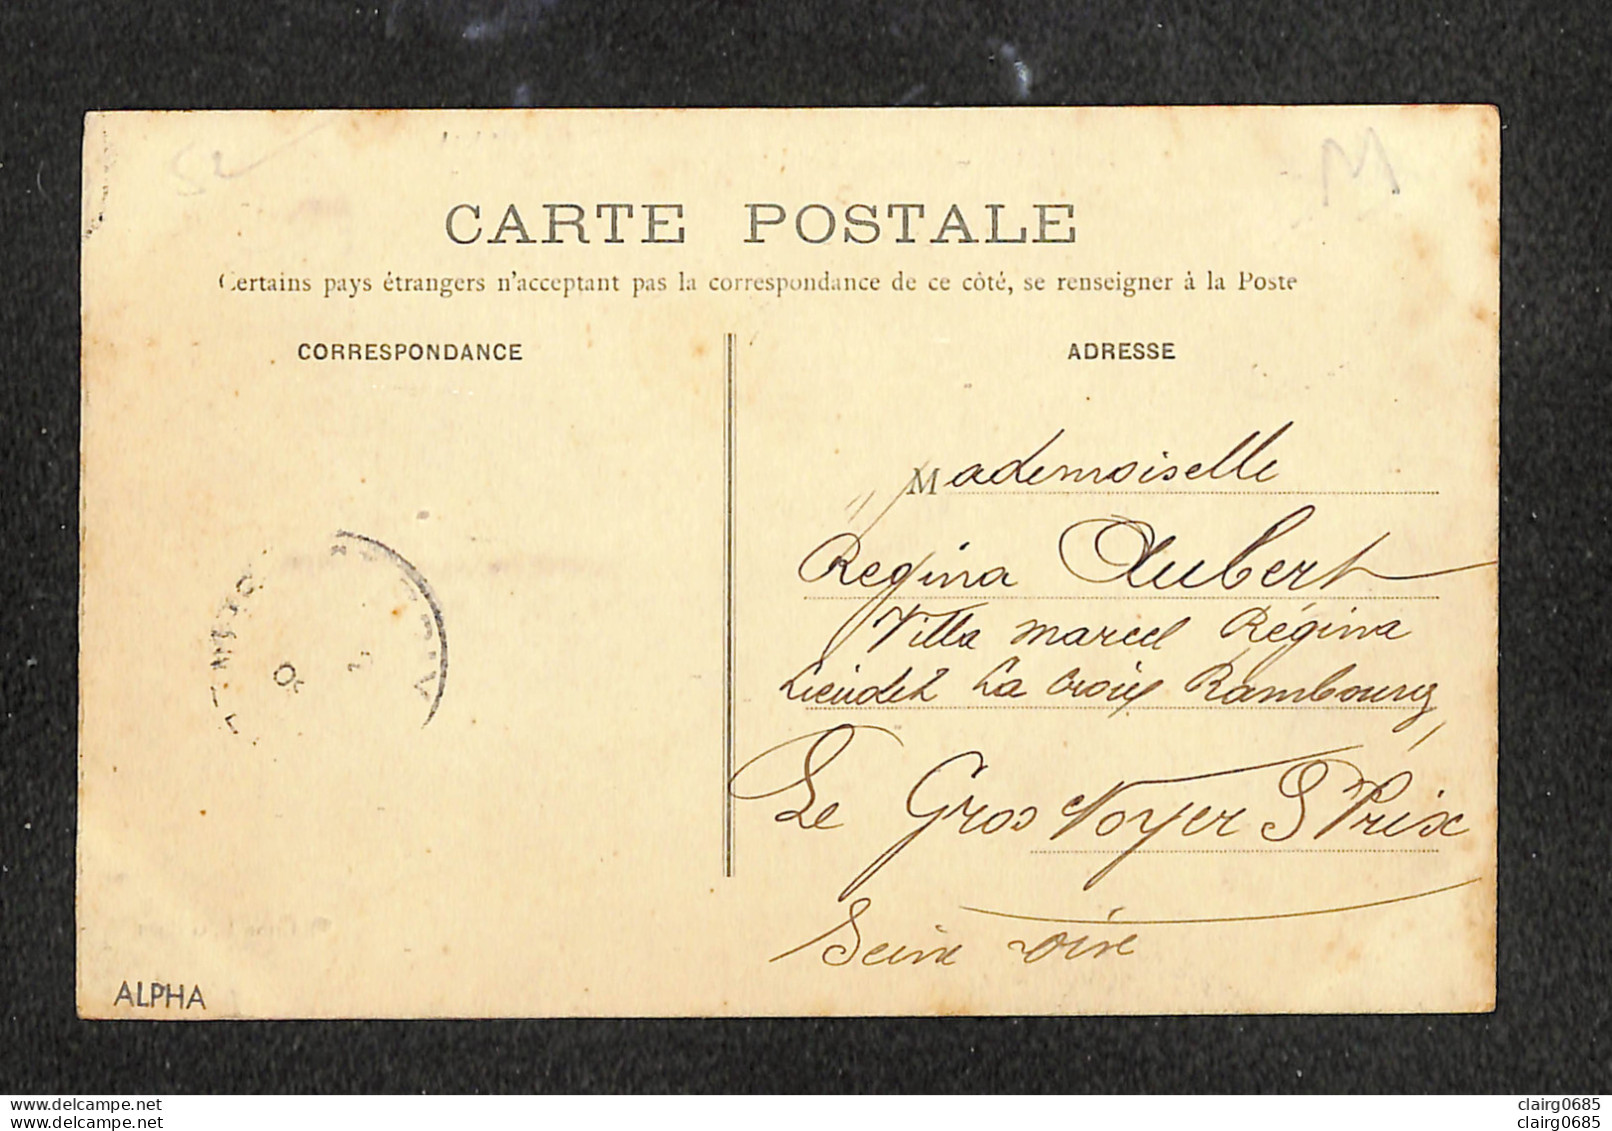 52
M
CARTE POSTALE
Certains pays étrangers n'acceptant pas la correspondance de ce côté, se renseigner à la Poste
CORRESPONDANCE
ADRESSE
Mademoiselle
Regina Aubert
Villa Marcel Régina
Lieudit La Croix Rambourg
Le Gros Noyer S Prix
Seine oise
ALPHA
delcampe.net
delcampe.net
clairg0685
clairg0685